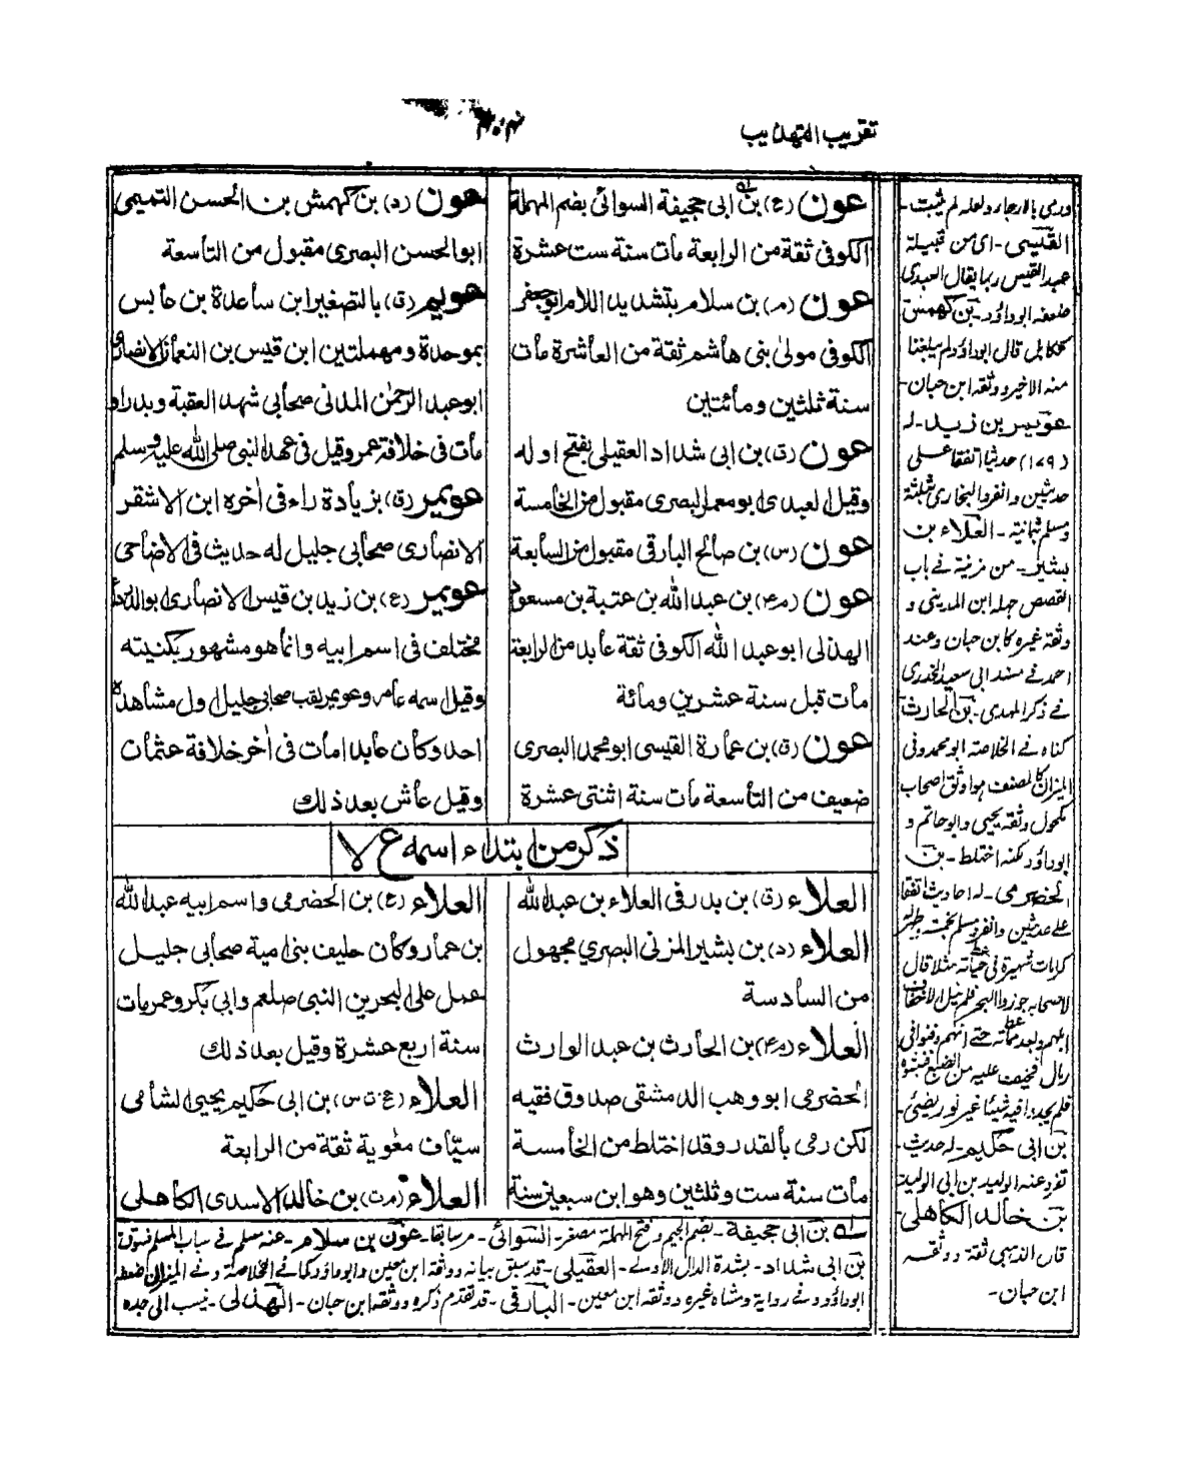 تقريب التهذيب
عون (ع) بن ابى جحيفة السوائى بضم المهملة
الكوفى ثقة من الرابعة مات سنة ست عشرة
عون (م) بن سلام بتشديد اللام ابو جعفر
الكوفى مولى بنى هاشم ثقة من العاشرة مات
سنة ثلثين ومأتين
عون (ق) بن ابى شداد العقيلى بفتح اوله
وقيل العبدى ابو معمر البصرى مقبول من الخامسة
عون (س) بن صالح البارقى مقبول من السابعة
عون (م۴) بن عبد الله بن عتبة بن مسعود
الهذلى ابو عبد الله الكوفى ثقة عابد من الرابعة
مات قبل سنة عشرين ومائة
عون (ق) بن عمارة القيسى ابو محمد البصرى
ضعيف من التاسعة مات سنة اثنتى عشرة
عون (د) بن كهمش بن الحسن التميمى
ابو الحسن البصرى مقبول من التاسعة
عويم (ق) بالتصغير ابن ساعدة بن عابس
بموحدة ومهملتين ابن قيس بن النعمان الانصارى
ابو عبد الرحمٰن المدنى صحابى شهد العقبة وبدرا و
مات فى خلافة عمر وقيل فى عهد النبى صلى الله عليه وسلم
عويمر (ق) بزيادة راء فى اٰخره ابن الاشقر
الانصارى صحابى جليل له حديث فى الاضاحى
عويمر (ع) بن زيد بن قيس الانصارى ابو الدرداء
مختلف فى اسم ابيه وانما هو مشهور بكنيته
وقيل اسمه عامر وعويمر لقب صحابى جليل اول مشاهده
احد وكان عابدا مات فى اٰخر خلافة عثمان
وقيل عاش بعد ذلك
ذكر من ابتداء اسمه ع لا
العلاء (ق) بن بدر فى العلاء بن عبد الله
العلاء (د) بن بشير المزنى البصري مجهول
من السادسة
العلاء (م۴) بن الحارث بن عبد الوارث
الحضرمى ابو وهب الدمشقى صدوق فقيه
لكن رمى بالقدر وقد اختلط من الخامسة
مات سنة ست وثلثين وهو ابن سبعين سنة
العلاء (ع) بن الحضرمى واسم ابيه عبد الله
بن عمار وكان حليف بنى امية صحابى جليل
عمل على البحرين النبى صلعم وابى بكر وعمر مات
سنة اربع عشرة وقيل بعد ذلك
العلاء (ع ت س) بن ابى حكيم يحيى الشامى
سيّاف معٰوية ثقة من الرابعة
العلاء (م ت) بن خالد الاسدى الكاهلى
له بن ابى جحيفة - بضم الجيم وفتح المهملة مصغر - السوائى - مر سابقا - عون بن سلام - عنه مسلم فى سباب المسلم فسوق
بن ابى شداد - بشدة الدال الاولى - العقيلى - قد سبق بيانه ووثقه ابن معين وابو داؤد كما فى الخلاصة وفى الميزان ضعفه
ابو داؤد وفى رواية ومشاه غيره ووثقه ابن معين - البارقى - قد تقدم ذكره ووثقه ابن حبان - الهذلى - نسب الى جده
ورمى بالارجاء ولعله لم يثبت -
القيسى - اى من قبيلة
عبد القيس ربما يقال العبدى
ضعفه ابو داؤد - بن كهمش
قال ابو داؤد لم يبلغنا
منه الا خير ووثقه ابن حبان -
عويمر بن زيد - له
(١٧٩) حديثا اتفقا على
حديثين وانفرد البخارى بثلثة
ومسلم بثمانية - العلاء بن
بشير - من مزينة فى باب
القصص جهله ابن المدينى و
وثقه غيره كابن حبان وعند
احمد فى مسند ابى سعيد الخدرى
فى ذكر المهدى - بن الحارث
كناه فى الخلاصة ابو محمد وفى
الميزان كالمصنف هو اوثق اصحاب
مكحول وثقه يحيى وابو حاتم و
ابو داؤد لكنه اختلط - بن
الحضرمى - له احاديث اتفقا
على حديثين وانفرد مسلم بخمسة
كرامات شهيرة فى حياته مثلا قال
فلم يجدوا فيه شيئا غير نور يضئ -
بن ابى حكيم - له حديث
تفرد عنه الوليد بن ابى الوليد
بن خالد الكاهلى -
قال الذهبى ثقة ووثقه
ابن حبان -